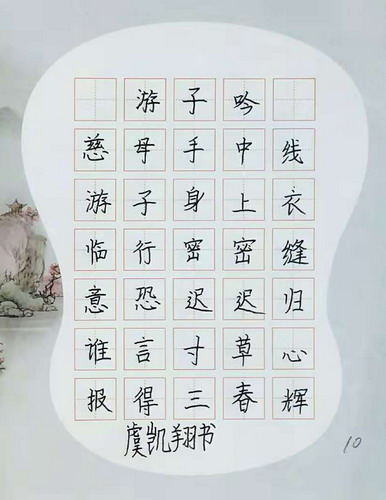 游子吟
慈母手中线
游子身上衣
临行密密缝
意恐迟迟归
谁言寸草心
报得三春辉
虞凯翔书
10